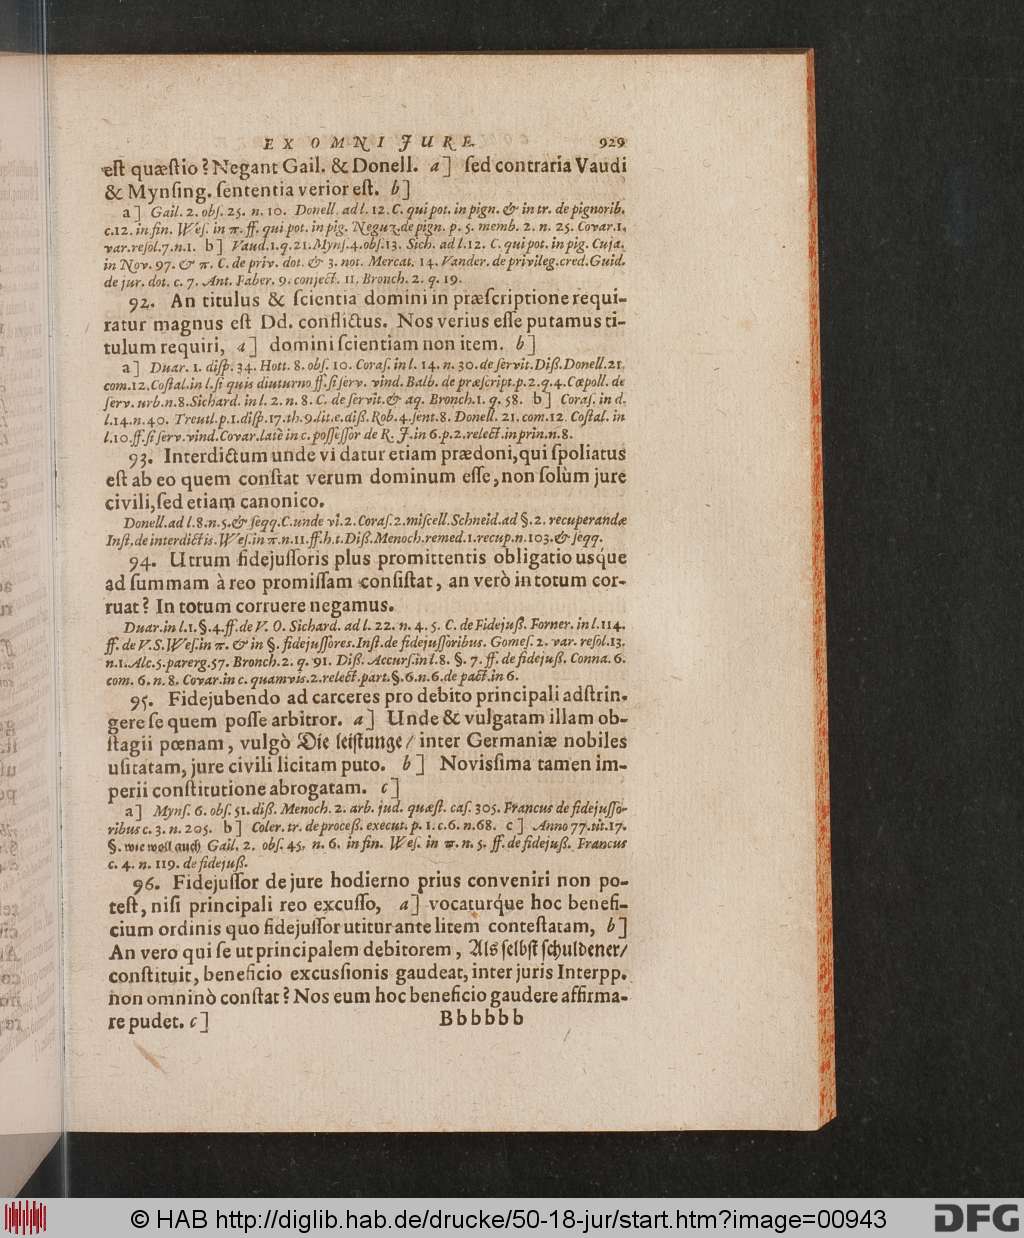 EX OMNI JURE. 929
est quæstio? Negant Gail. & Donell. a] sed contraria Vaudi
& Mynsing. sententia verior est. b]
a] Gail. 2. obs. 25. n. 10. Donell. ad l. 12. C. qui pot. in pign. & in tr. de pignorib.
c.12. in fin. Wes. in π. ff. qui pot. in pig. Neguz. de pign. p. 5. memb. 2. n. 25. Covar.1.
var. resol.7.n.1. b] Vaud.1.q.21. Myns.4.obs.13. Sich. ad l.12. C. qui pot. in pig. Cuja.
in Nov. 97. & π. C. de priv. dot. & 3. not. Mercat. 14. Vander. de privileg. cred. Guid.
de jur. dot. c. 7. Ant. Faber. 9. conject. 11. Bronch. 2. q. 19.
92. An titulus & scientia domini in præscriptione requi-
ratur magnus est Dd. conflictus. Nos verius esse putamus ti-
tulum requiri, a] domini scientiam non item. b]
a] Duar. 1. disp. 34. Hott. 8. obs. 10. Coras. in l. 14. n. 30. de servit. Diß. Donell.21.
com.12. Costal. in l. si quis diuturno ff. si serv. vind. Balb. de præscript. p.2.q.4. Cœpoll. de
serv. urb. n.8. Sichard. in l. 2. n. 8. C. de servit. & aq. Bronch.1. q. 58. b] Coras. in d.
l.14.n.40. Treutl. p.1. disp.17. th.9. lit.e. diß. Rob.4. sent.8. Donell. 21. com.12. Costal. in
l.10.ff. si serv. vind. Covar. latè in c. possessor de R. J. in 6. p.2. relect. in prin. n.8.
93. Interdictum unde vi datur etiam prædoni, qui spoliatus
est ab eo quem constat verum dominum esse, non solùm jure
civili, sed etiam canonico.
Donell. ad l.8.n.5.& seqq. C. unde vi.2. Coras.2. miscell. Schneid. ad §.2. recuperandæ
Inst. de interdictis. Wes. in π.n.11.ff.h.t. Diß. Menoch. remed.1. recup. n.103. & seqq.
94. Utrum fidejussoris plus promittentis obligatio usque
ad summam à reo promissam consistat, an verò in totum cor-
ruat? In totum corruere negamus.
Duar. in l.1.§.4.ff. de V. O. Sichard. ad l. 22. n. 4. 5. C. de Fidejuß. Forner. in l.114.
ff. de V.S. Wes. in π. & in §. fidejussores. Inst. de fidejussoribus. Gomes. 2. var. resol.13.
n.1. Alc.5. parerg.57. Bronch.2. q. 91. Diß. Accurs. in l.8. §. 7. ff. de fidejuß. Conna. 6.
com. 6. n.8. Covar. in c. quamvis.2. relect. part.§.6.n.6. de pact. in 6.
95. Fidejubendo ad carceres pro debito principali adstrin-
gere se quem posse arbitror. a] Unde & vulgatam illam ob-
stagii pœnam, vulgò Die leistunge/ inter Germaniæ nobiles
usitatam, jure civili licitam puto. b] Novissima tamen im-
perii constitutione abrogatam. c]
a] Myns. 6. obs. 51. diß. Menoch. 2. arb. jud. quæst. cas. 305. Francus de fidejusso-
ribus c. 3. n. 205. b] Coler. tr. de proceß. execut. p. 1. c.6. n.68. c] Anno 77. tit.17.
§. wie wol auch Gail. 2. obs. 45. n. 6. in fin. Wes. in π. n. 5. ff. de fidejuß. Francus
c. 4. n. 119. de fidejuß.
96. Fidejussor de jure hodierno prius conveniri non po-
test, nisi principali reo excusso, a] vocaturque hoc benefi-
cium ordinis quo fidejussor utitur ante litem contestatam, b]
An vero qui se ut principalem debitorem, Als selbst schuldener/
constituit, beneficio excussionis gaudeat, inter juris Interpp.
non omninò constat? Nos eum hoc beneficio gaudere affirma-
re pudet. c] Bbbbbb
© HAB http://diglib.hab.de/drucke/50-18-jur/start.htm?image=00943 DFG